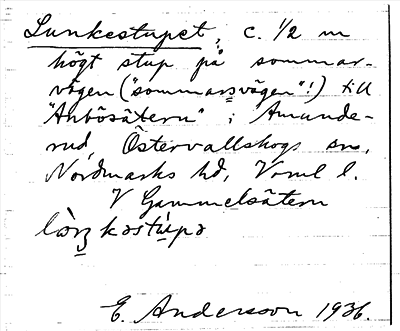 Lunkestupet, c. 1/2 m
högt stup på sommar-
vägen ("sommarsvägen"!) till
"Ånbösätern" i Amunde-
rud, Östervallskogs sn,
Nordmarks hd, Vrml l.
V Gammelsätern
E. Andersson 1936.